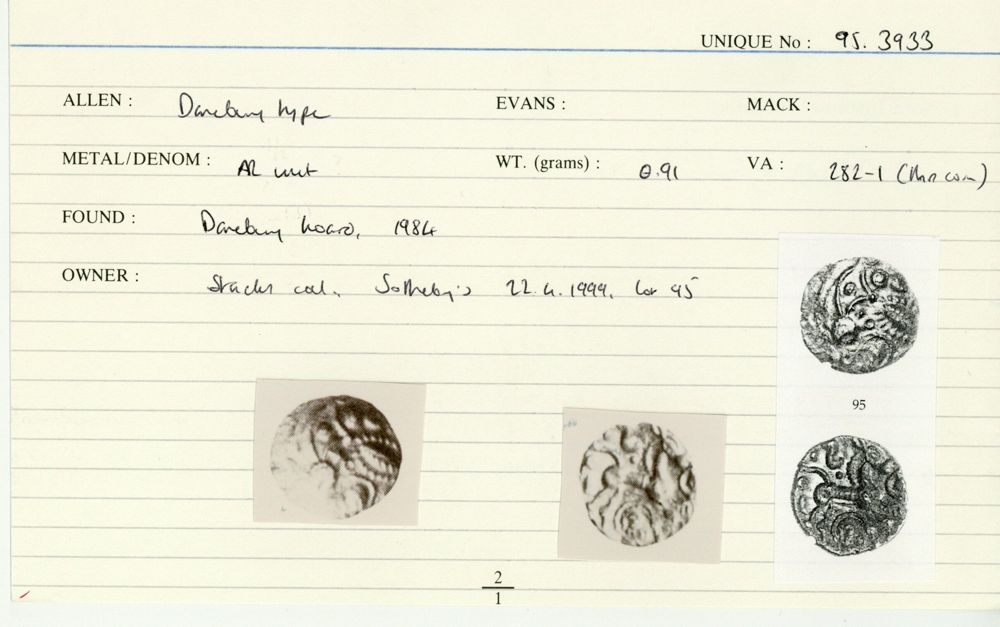 UNIQUE No : 95. 3933
ALLEN : Danebury type EVANS : MACK :
METAL/DENOM : AR unit WT. (grams) : 0.91 VA : 282-1 (this coin)
FOUND : Danebury hoard, 1984
OWNER : coll. Sotheby's 22.4.1999, lot 95
95
2
1